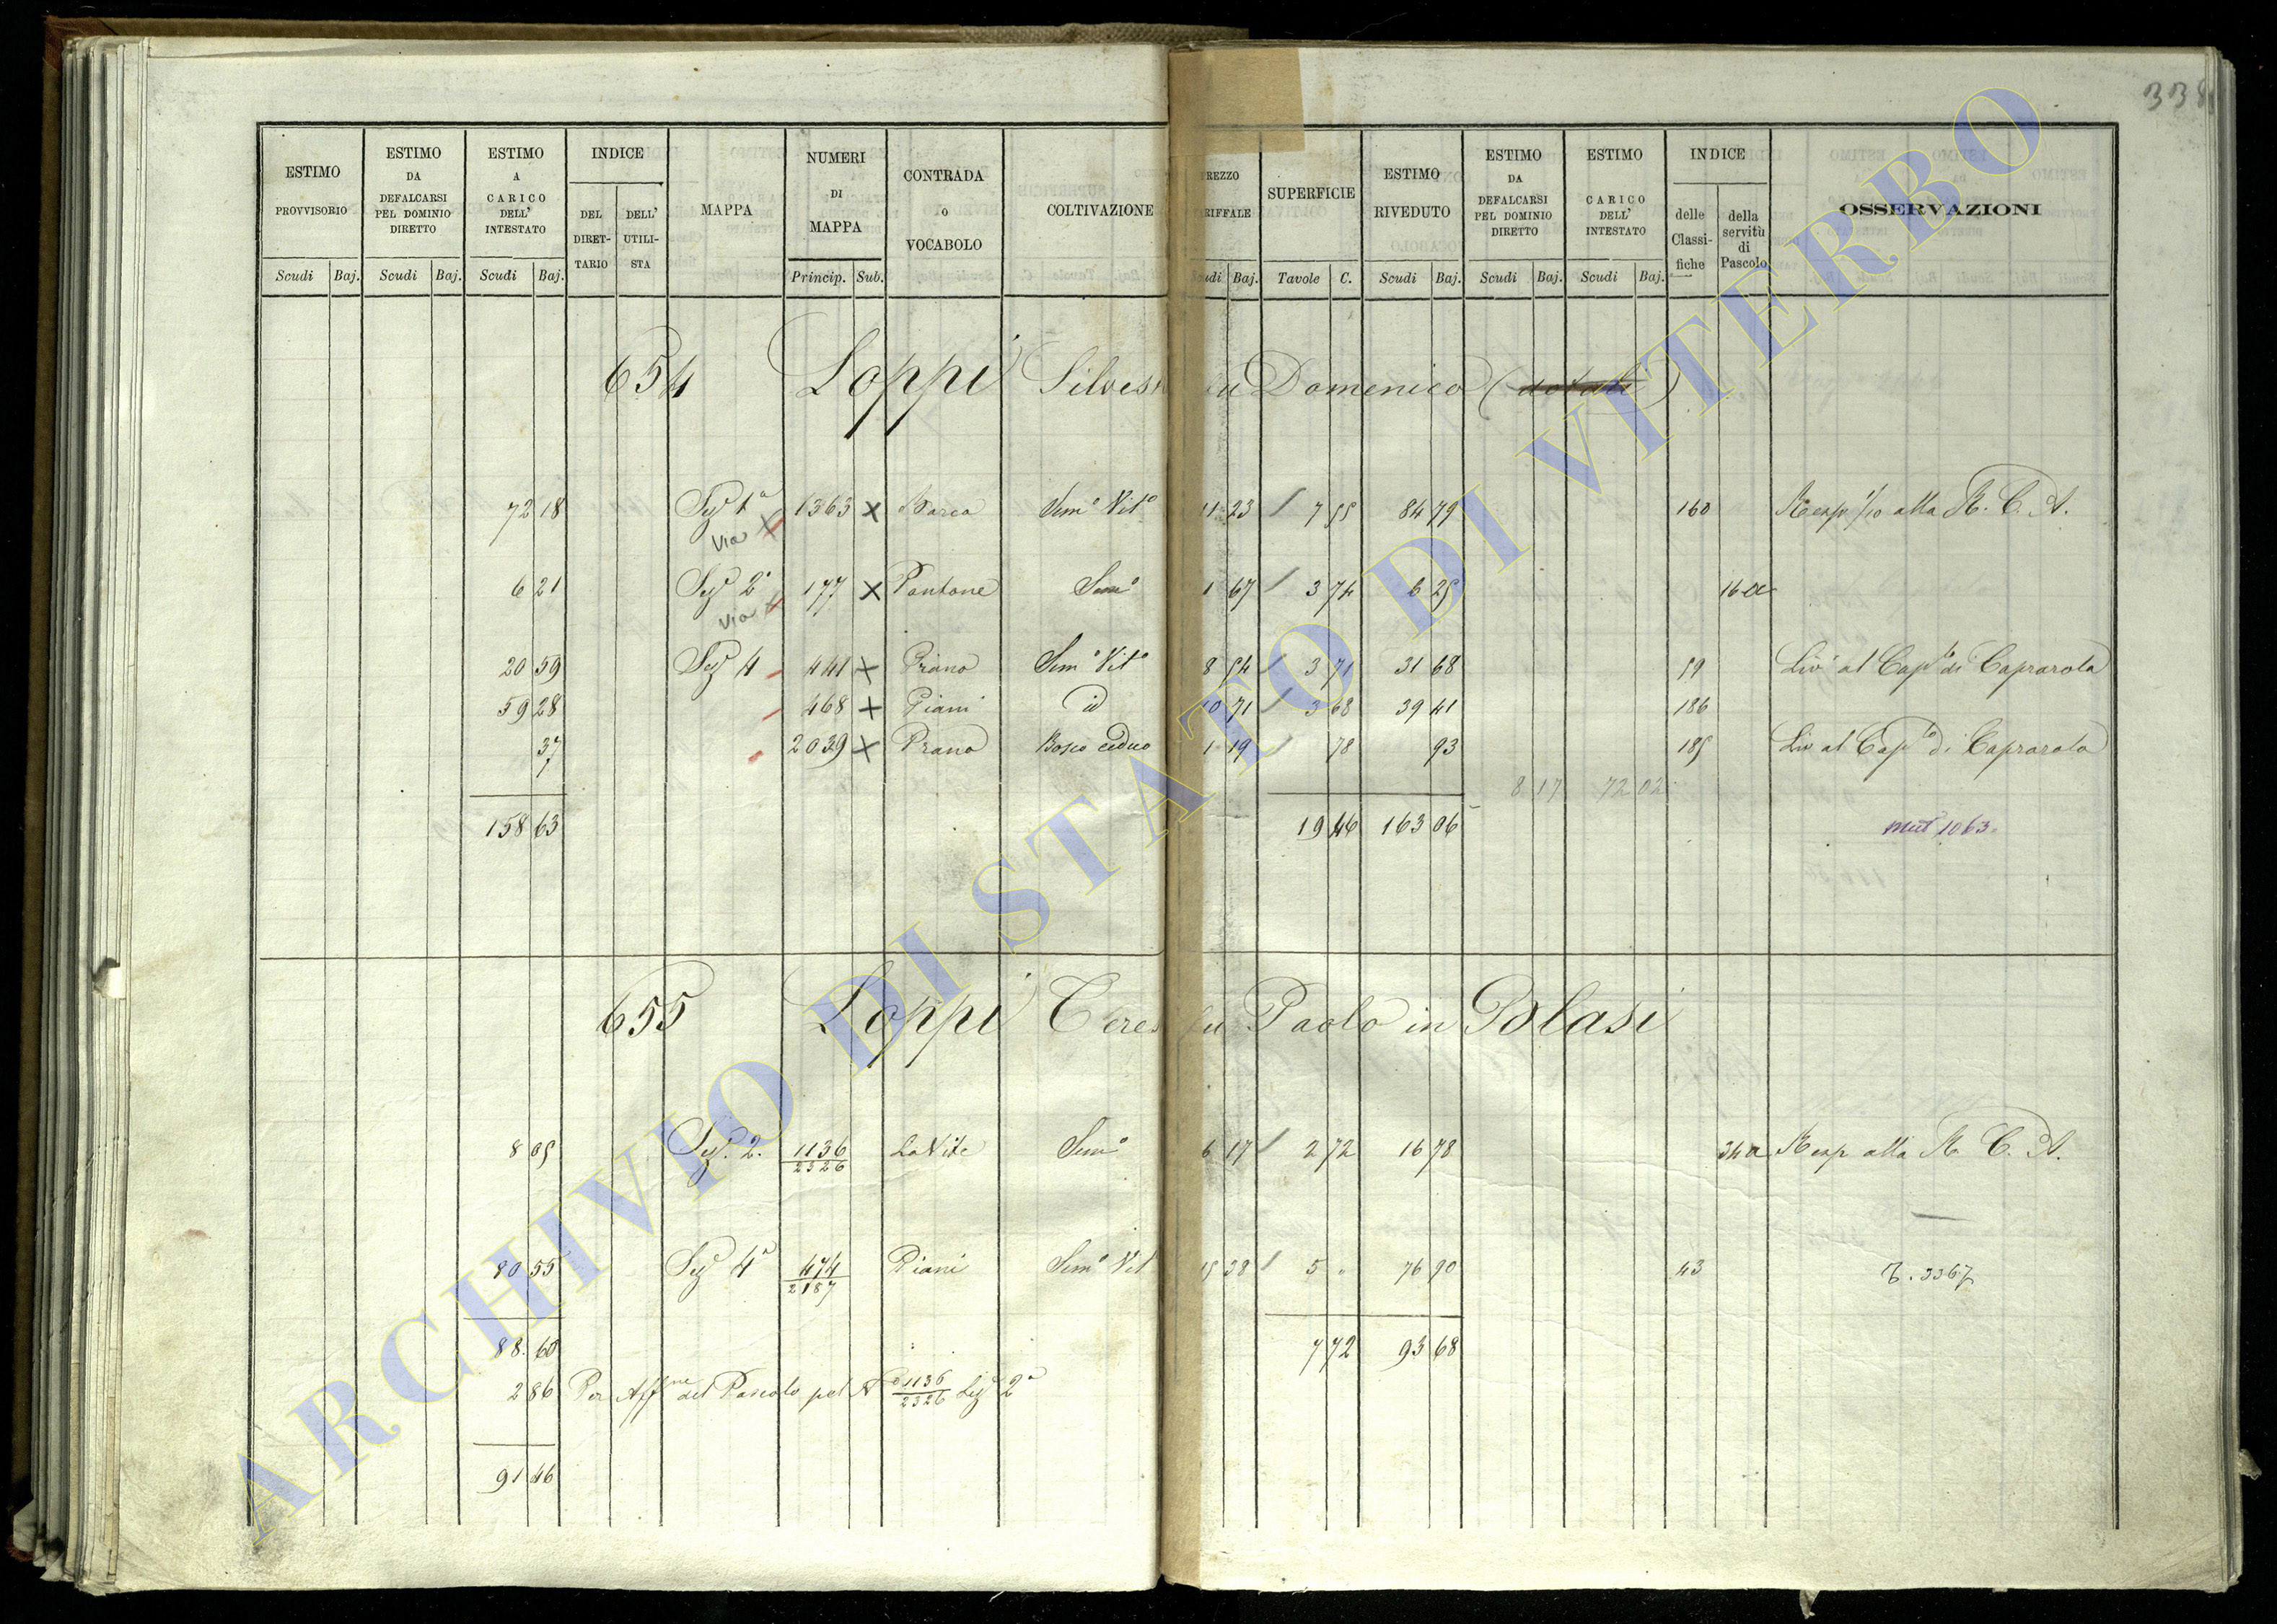 338
ESTIMO PROVVISORIO Scudi Baj.
ESTIMO DA DEFALCARSI PEL DOMINIO DIRETTO Scudi Baj.
ESTIMO A CARICO DELL' INTESTATO Scudi Baj.
INDICE DEL DIRET-TARIO DELL' UTILI-STA
MAPPA
NUMERI DI MAPPA Princip. Sub.
CONTRADA O VOCABOLO
COLTIVAZIONE
REZZO RIFFALE udi Baj.
SUPERFICIE Tavole C.
ESTIMO RIVEDUTO Scudi Baj.
ESTIMO DA DEFALCARSI PEL DOMINIO DIRETTO Scudi Baj.
ESTIMO CARICO DELL' INTESTATO Scudi Baj.
INDICE delle Classi-fiche della servitù di Pascolo
OSSERVAZIONI
654 Loppi Silves fu Domenico (dotali)
72 18 Sezº 1ª 1363 x Barca Semº Vitº 11 23 / 7 55 84 79 160 Resp 1/10 alla R. C. A.
Via x
6 21 Sezº 2ª 177 x Pantane Semº 1 67 / 3 74 6 25 16 a
Via x
20 59 Sezº 4 441 x Piano Semº Vitº 8 54 / 3 71 31 68 59 Livº al Capº di Caprarola
59 28 468 x Piani id 10 71 / 3 68 39 41 186
37 2039 x Piano Bosco ceduo 1 19 / 78 93 185 Liv al Capº di Caprarola
8 17 72 02
158 63 19 46 163 06 Mut 1063
655 Loppi Teres fu Paolo in Blasi
8 05 Sez. 2. 1136/2326 La Vite Semº 6 17 / 2 72 16 78 34 a Resp alla R. C. A.
80 55 Sezº 4ª 474/2187 Piani Semº Vit 15 38 / 5 " 76 90 43 3367
88 60 7 72 93 68
2 86 Per Affne del Pascolo pel Nº 1136/2326 Sezº 2ª
91 46
ARCHIVIO DI STATO DI VITERBO